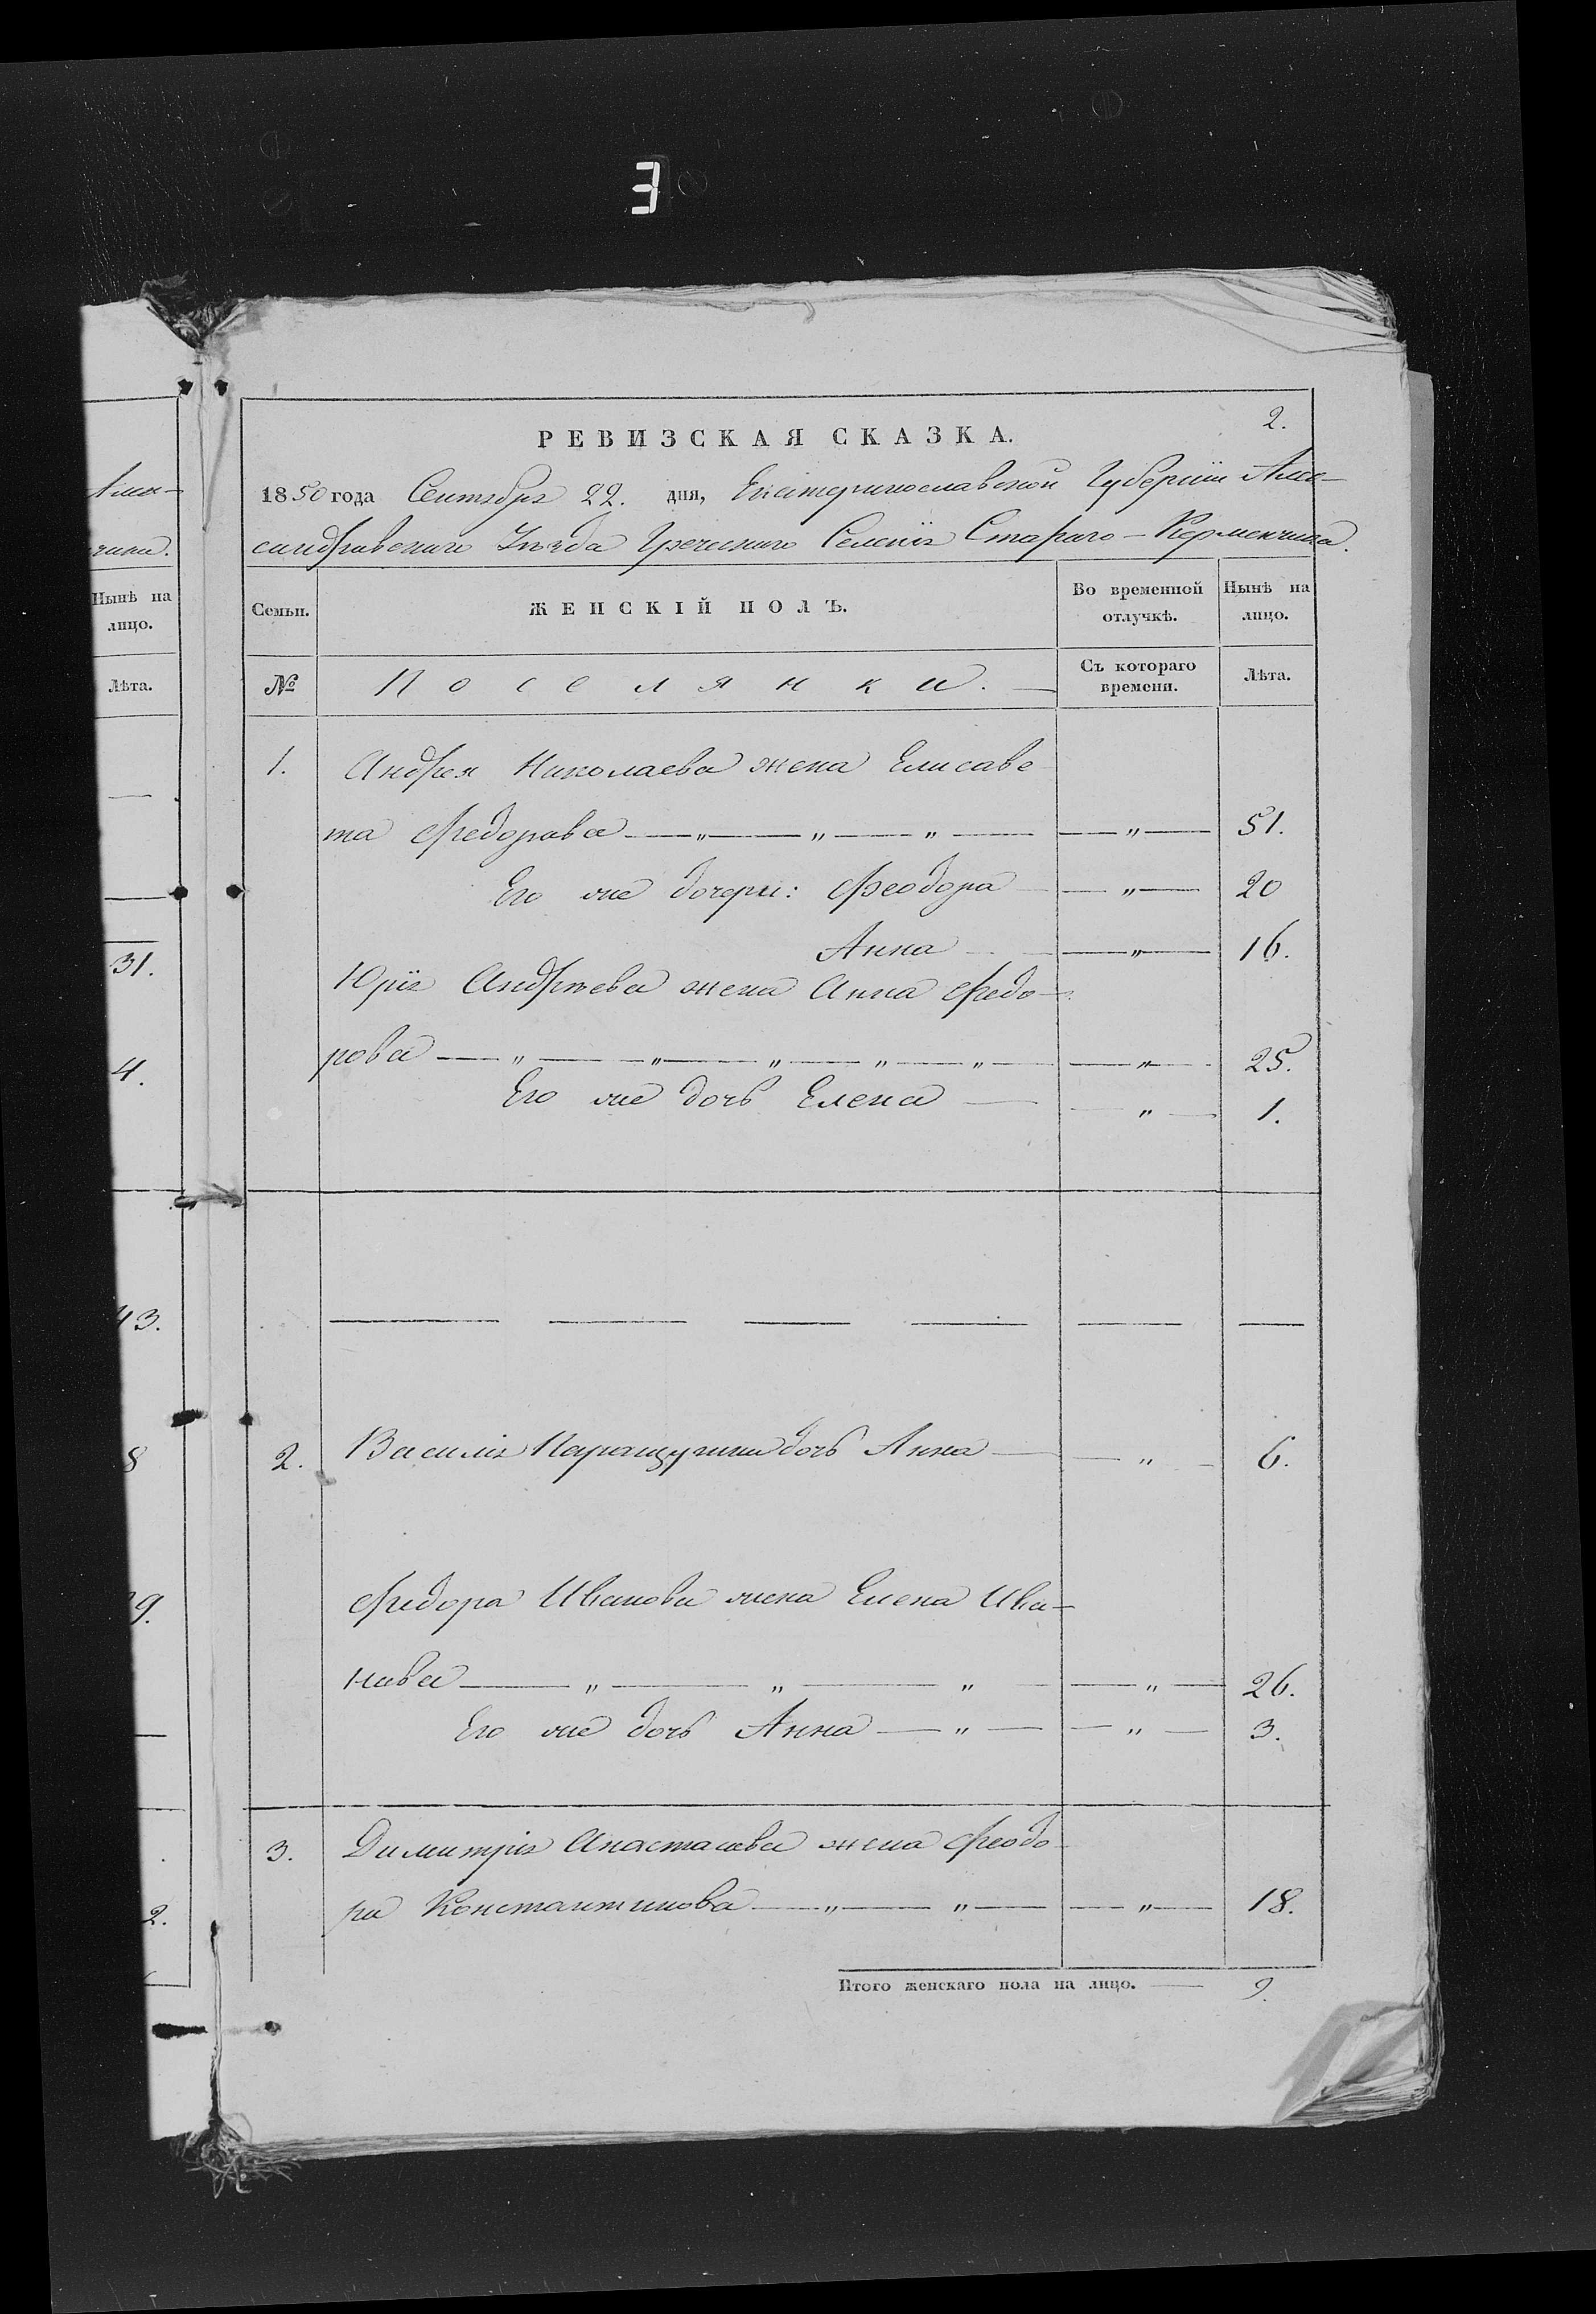 2.
РЕВИЗСКАЯ СКАЗКА.
1850 года Сентября 22. дня, Екатеринославской Губернии Алек-
сандровского Уѣзда Греческаго Селенія Стараго-Керменчика.
Семьи.
ЖЕНСКІЙ ПОЛЪ.
Во временной
отлучкѣ.
Нынѣ на
лицо.
№
Поселянки.
Съ котораго
времени.
Лѣта.
1. Андрея Николаева жена Елисаве
та Федорова — „ — „ — „ — — „ — 51.
Его же дочери: Феодора — „ — 20
Анна — „ — 16.
Юрія Андрѣева жена Анна Федо-
рова — „ — „ — „ — „ — „ — — „ — 25.
Его же дочь Елена — — „ — 1.
2. Василія дочь Анна — — „ — 6.
Федора Иванова жена Елена Ива-
нова — „ — „ — „ — — „ — 26.
Его же дочь Анна — „ — — „ — 3.
3. Димитрія Анастасова жена Феодо
ра Константинова — „ — „ — — „ — 18.
Итого женскаго пола на лицо. — 9.
Нынѣ на
лицо.
Лѣта.
31.
4.
43.
8
9.
2.